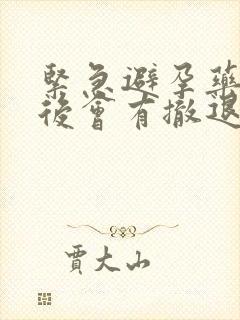 緊急避孕藥
後會有撤退
賈大山